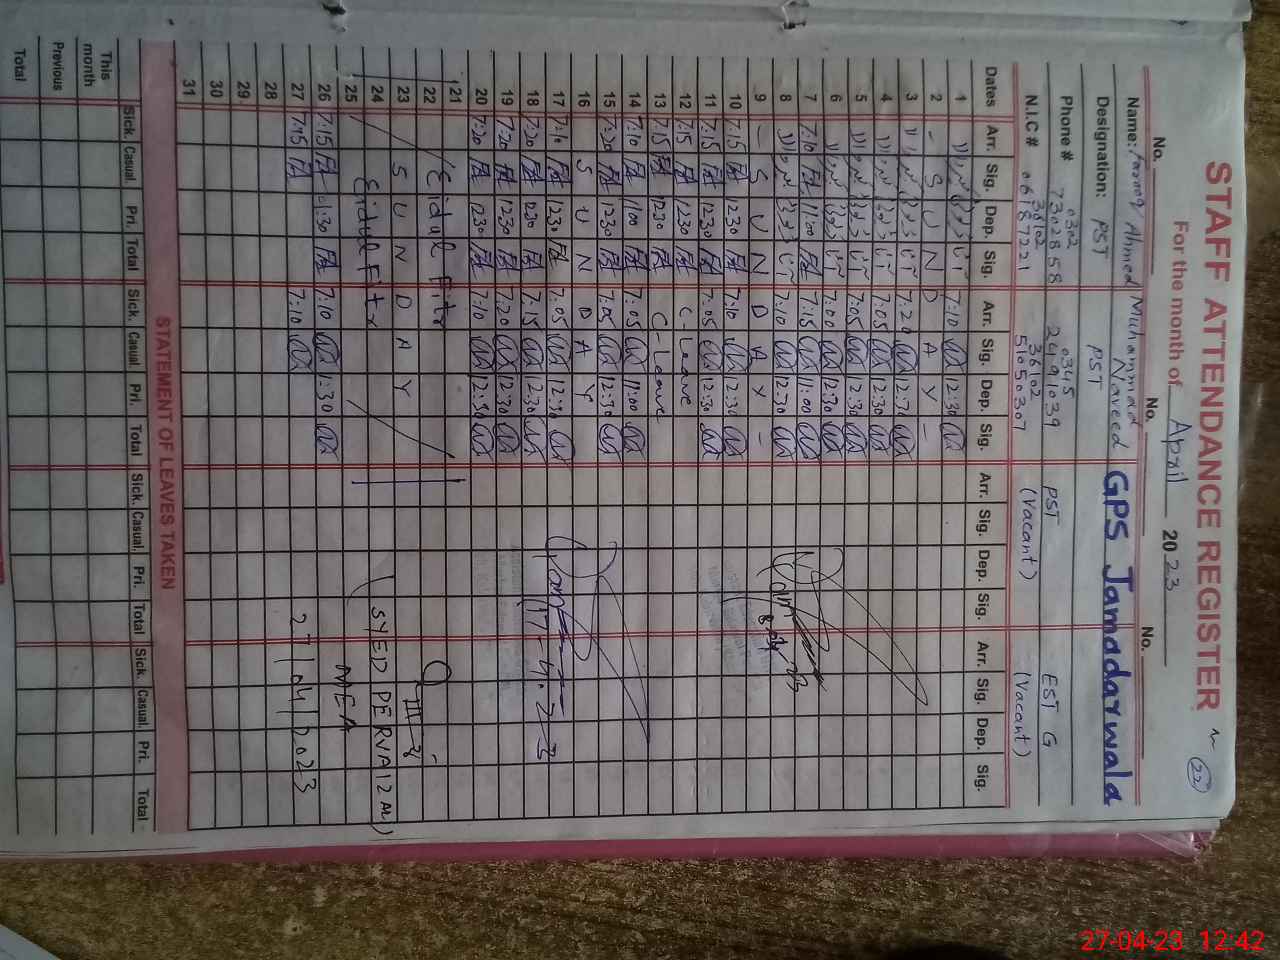 STAFF ATTENDANCE REGISTER (22)
For the month of April 2023
No. No. No.
Name: Farooq Ahmed Muhammad Naveed GPS Jamadarwala
Designation: PST PST PST (Vacant) EST G (Vacant)
Phone # 0302 7302858 0345 2491039
N.I.C # 36102 06187221 36102 51050307
Dates Arr. Sig. Dep. Sig. Arr. Sig. Dep. Sig. Arr. Sig. Dep. Sig. Arr. Sig. Dep. Sig.
1 7:10 12:30
2 - S U N D A Y -
3 7:20 12:30
4 7:05 12:30
5 7:05 12:30
6 7:00 12:30
7 7:10 11:00 7:15 11:00
8 7:10 12:30
9 - S U N D A Y -
10 7:15 1230 7:10 12:30
11 7:15 1230 7:05 12:30
12 7:15 1230 C-Leave
13 7:15 1230 C-Leave
14 7:10 1100 7:05 11:00
15 7:20 1230 7:05 12:30
16 S U N D A Y
17 7:10 1230 7:05 12:30
18 7:20 1230 7:15 12:30
19 7:20 1230 7:20 12:30
20 7:20 1230 7:10 12:30
21
22 Eidul Fitr
23 S U N D A Y
24 Eidul Fitr
25
26 7:15 1:30 7:10 1:30
27 7:15 7:10
28
29
30
31
8-04-23
17-4-23
SYED PERVAIZ
MEA
27/04/2023
STATEMENT OF LEAVES TAKEN
Sick. Casual. Pri. Total Sick. Casual. Pri. Total Sick. Casual. Pri. Total Sick. Casual. Pri. Total
This month
Previous
Total
27-04-23 12:42